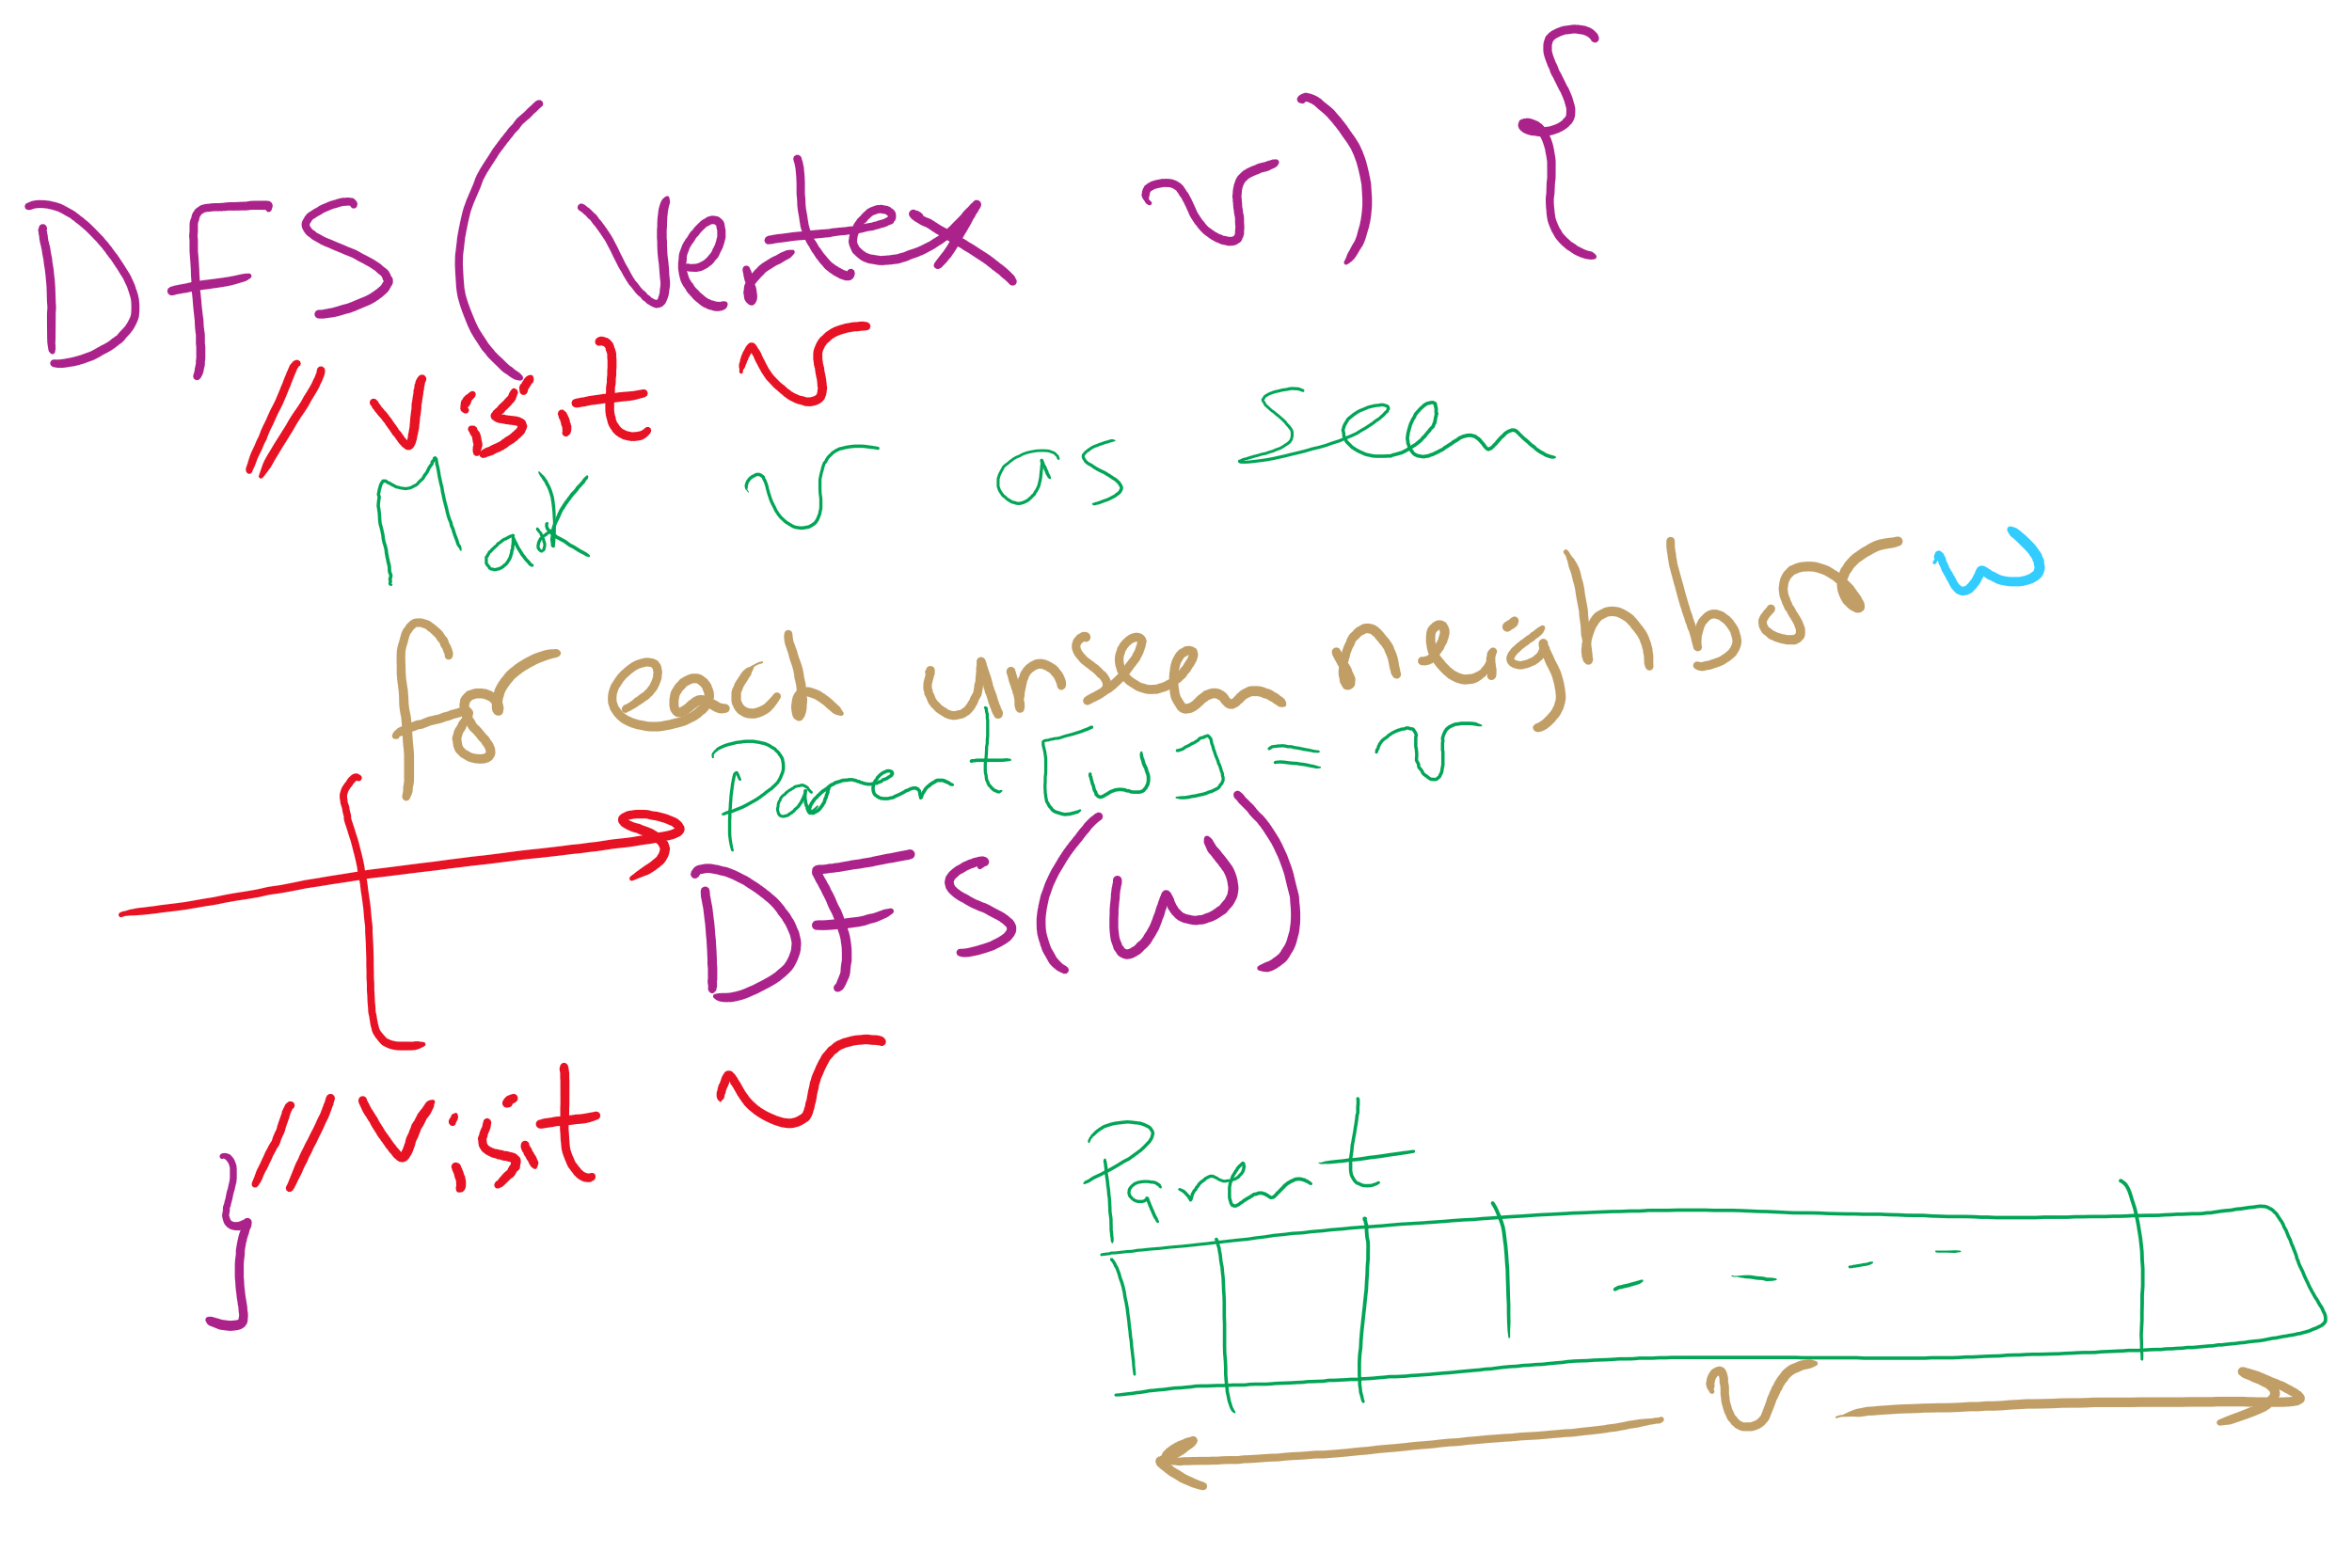 DFS(Vertex v) {
// visit v
Mark v as seen
for each unseen neighbor w
Parent[w] = v
DFS(w)
// visit v
}
Parent
- - - -
v